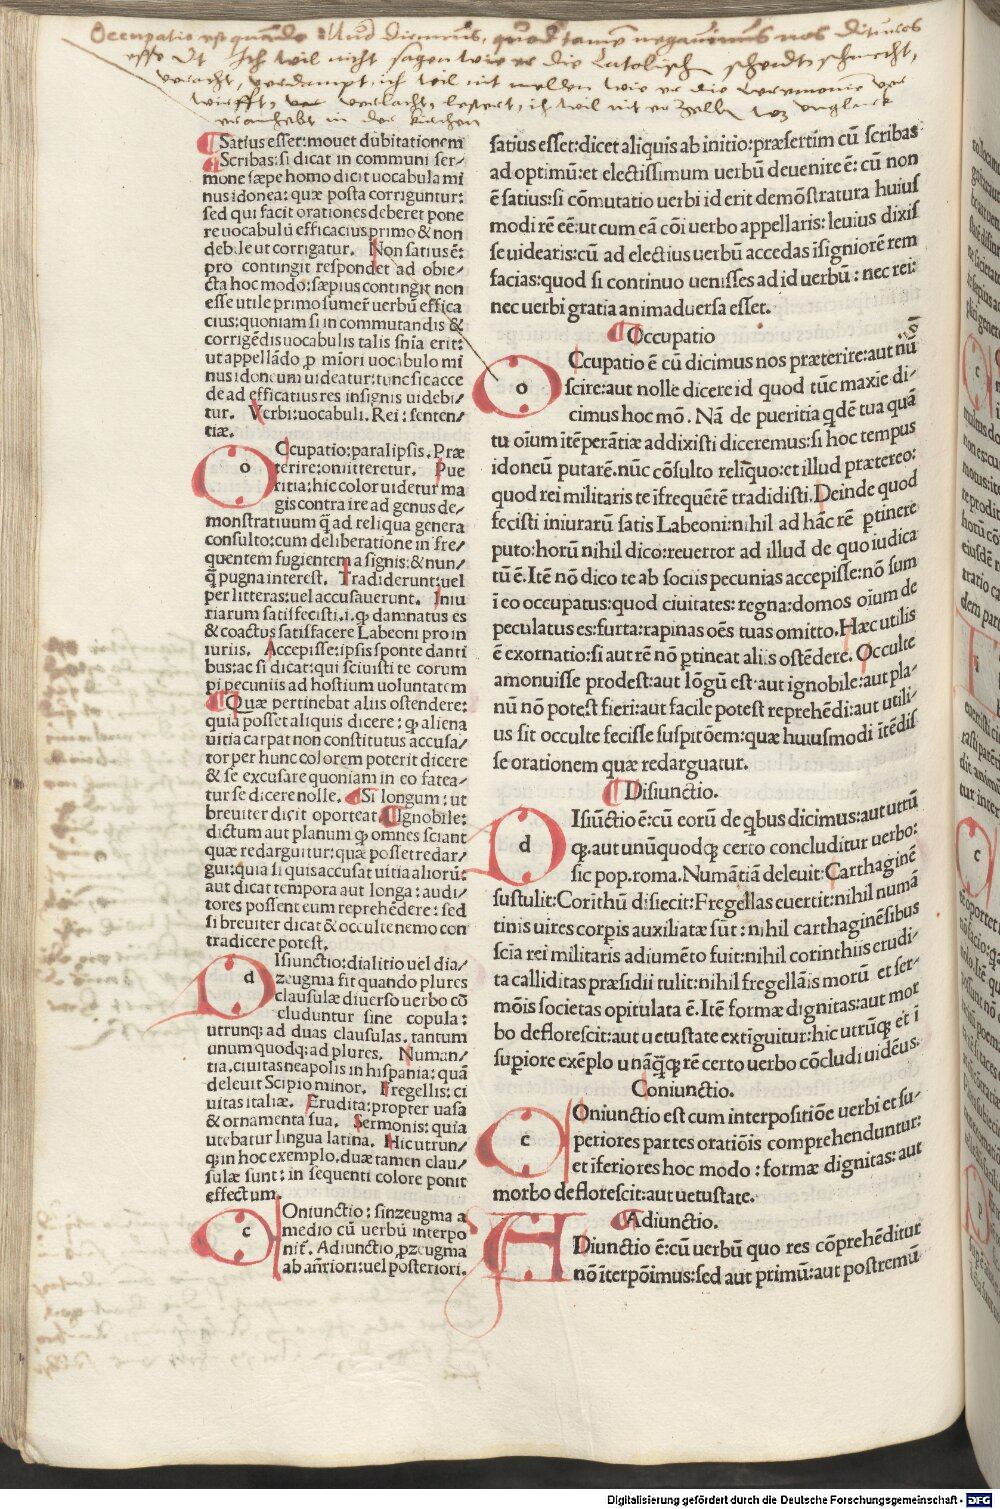 Occupatio est quando illud dicimus, quod tamen negavimus nos dicturos
esse Ut Ich wil nicht sagen wie er die Catolisch schendt, schmecht,
veracht, verdampt, ich wil nit melden wie er die Ceremonien ver
wirfft, verlacht, lestert, ich wil nit erzellen was unglück
er anhebt in der kirchen
Satius esset: mouet dubitationem
Scribas: si dicat in communi ser⸗
mone sæpe homo dicit uocabula mi
nus idonea: quæ posta corriguntur:
sed qui facit orationes deberet pone
re uocabulū efficacius primo & non
debile ut corrigatur. Non satius ē:
pro contingit respondet ad obie⸗
cta hoc modo: sæpius contingit non
esse utile primo sumeř uerbū effica
cius: quoniam si in commutandis &
corrigēdis uocabulis talis snīa erit:
ut appellādo ꝑ miori uocabulo mi
nus idoneum uideatur: tunc sic acce
de ad efficatius res insignis uidebi⸗
tur. Verbi: uocabuli. Rei: senten⸗
tiæ.
o
Ccupatio: paralipsis. Præ
terire: omitteretur. Pue
ritia: hic color uidetur ma
gis contraire ad genus de⸗
monstratiuum q̄ ad reliqua genera
consulto: cum deliberatione in fre⸗
quentem fugientem a signis: & nun⸗
q̄ pugna interest. Tradiderunt: uel
per litteras: uel accusauerunt. Iniu
riarum satisfecisti .i. ꝙ damnatus es
& coactus satisfacere Labeoni pro in
iuriis. Accepisse: ipsis sponte danti
bus: ac si dicat: qui sciuisti te corum
pi pecuniis ad hostium uoluntatem
Quæ pertinebat aliis ostendere:
quia posset aliquis dicere: ꝙ aliena
uitia carpat non constitutus accusa⸗
tor per hunc colorem poterit dicere
& se excusare quoniam in eo fatea⸗
tur se dicere nolle. Si longum: ut
breuiter dicit oporteat. Ignobile:
dictum aut planum ꝙ omnes sciant
quæ redarguitur: quæ posset redar⸗
gui: quia si quis accusat uitia aliorū:
aut dicat tempora aut longa: audi⸗
tores possent eum reprehēdere: sed
si breuiter dicat & occulte nemo con
tradicere potest.
d
Isiunctio: dialitio uel dia⸗
zeugma fit quando plures
clausulæ diuerso uerbo cō
cluduntur sine copula:
utrunq; ad duas clausulas. tantum
unum quodq; ad plures. Numan⸗
tia. ciuitas neapolis in hispania: quā
deleuit Scipio minor. Fregellis: ci
uitas italiæ. Erudita: propter uasa
& ornamenta sua. Sermonis: quia
utebatur lingua latina. Hic utrun⸗
q; in hoc exemplo. duæ tamen clau⸗
sulæ sunt: in sequenti colore ponit
effectum.
c
Oniunctio: sinzeugma a
medio cū uerbū interpo
nit̄. Adiunctio ꝓzeugma
ab an̄riori: uel posteriori.
satius esset: dicet aliquis ab initio: præsertim cū scribas
ad optimū: et electissimum uerbū deuenire ē: cū non
ē satius: si cōmutatio uerbi id erit demōstratura huius
modi rē eē: ut cum eā cōi uerbo appellaris: leuius dixis
se uidearis: cū ad electius uerbū accedas īsigniorē rem
facias: quod si continuo uenisses ad id uerbū: nec rei:
nec uerbi gratia animaduersa esset.
Occupatio
o
Ccupatio ē cū dicimus nos præterire: aut nō
scire: aut nolle dicere id quod tūc maxīe di⸗
cimus hoc mō. Nā de pueritia qdē tua quā
tu oīum ītēperātiæ addixisti diceremus: si hoc tempus
idoneū putarē. nūc cōsulto relīquo: et illud prætereo:
quod rei militaris te īfrequētē tradidisti. Deinde quod
fecisti iniurarū satis Labeoni: nihil ad hāc rē ꝑtinere
puto: horū nihil dico: reuertor ad illud de quo iudica
tū ē. Itē nō dico te ab sociis pecunias accepisse: nō sum
ī eo occupatus: quod ciuitates: regna: domos oīum de
peculatus es: furta: rapinas oēs tuas omitto. Hæc utilis
ē exornatio: si aut rē nō ꝑtineat aliis ostēdere. Occulte
amonuisse prodest: aut lōgū est aut ignobile: aut pla⸗
nū nō potest fieri: aut facile potest reprehēdi: aut utili⸗
us sit occulte fecisse suspitōem: quæ huiusmodi itēdis
se orationem quæ redarguatur.
Disiunctio.
d
Isiūctio ē: cū eorū de qbus dicimus: aut utrū
ꝙ. aut unūquodꝙ certo concluditur uerbo:
sic pop. roma. Numātiā deleuit: Carthaginē
sustulit: Corithū disiecit: Fregellas euertit: nihil numā
tinis uires corpis auxiliatæ sūt: nihil carthaginēsibus
scīa rei militaris adiumēto fuit: nihil corinthiis erudi⸗
ta calliditas præsidii tulit: nihil fregellāis morū et ser⸗
mōis societas opitulata ē. Itē formæ dignitas: aut mor
bo deflorescit: aut uetustate extīguitur: hic utrūq; et ī
supiore exēplo unāqq rē certo uerbo cōcludi uidēus.
Coniunctio.
c
Oniunctio est cum interpositiōe uerbi et su⸗
periores partes oratiōis comprehenduntur:
et īferiores hoc modo: formæ dignitas: aut
morbo deflorescit: aut uetustate.
Adiunctio.
A
Diunctio ē: cū uerbū quo res cōprehēditur
nō īterpōimus: sed aut primū: aut postremū
Digitalisierung gefördert durch die Deutsche Forschungsgemeinschaft - DFG